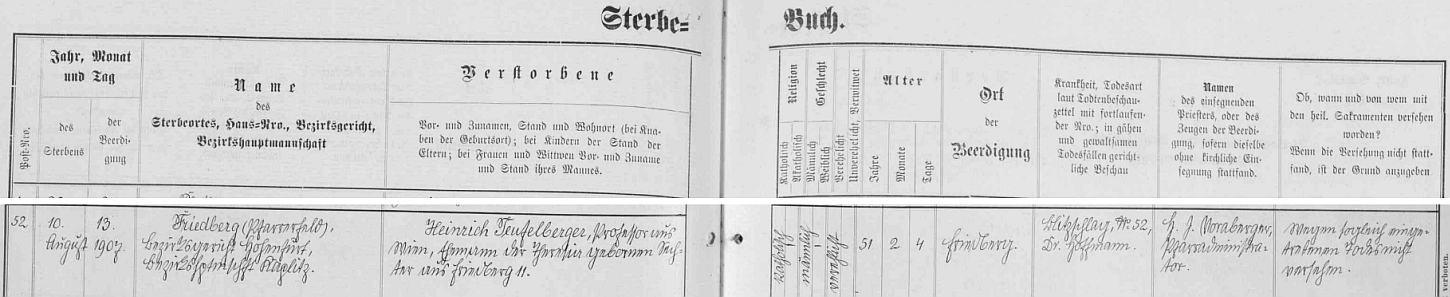 Sterbe= Buch.
Post-Nro.
Jahr, Monat
und Tag
des
Sterbens
der
Beerdi-
gung
Name
des
Sterbeortes, Haus-Nro., Bezirksgericht,
Bezirkshauptmannschaft
Verstorbene
Vor- und Zunamen, Stand und Wohnort (bei Kna-
ben der Geburtsort); bei Kindern der Stand der
Eltern; bei Frauen und Wittwen Vor- und Zuname
und Stand ihres Mannes.
Religion
Katholisch
Akatholisch
Geschlecht
Männlich
Weiblich
Verehelicht
Unverehelicht, Verwitwet
Alter
Jahre
Monate
Tage
Ort
der
Beerdigung
Krankheit, Todesart
laut Todtenbeschau-
zettel mit fortlaufen-
der Nro.; in gähen
und gewaltsamen
Todesfällen gericht-
liche Beschau
Namen
des einsegnenden
Priesters, oder des
Zeugen der Beerdi-
gung, sofern dieselbe
ohne kirchliche Ein-
segnung stattfand.
Ob, wann und von wem mit
den heil. Sakramenten versehen
worden?
Wenn die Versehung nicht statt-
fand, ist der Grund anzugeben
52.
10.
August
13.
1907.
Friedberg (Pfarrerfeld),
Bezirksgericht Hohenfurt,
Bezirkshptmschft Kaplitz.
Heinrich Teufelberger, Professor aus
Wien, Ehemann der Theresia gebornen
ter aus Friedberg 11.
katholisch
männlich
verehelicht
51
2
4
Friedberg.
Blitzschlag, Nr. 52,
Dr. Hoffmann.
H. J. Voraberger,
Pfarradministra-
tor.
Wegen sogleich einge-
tretenen Todes nicht
versehen.
verboten.